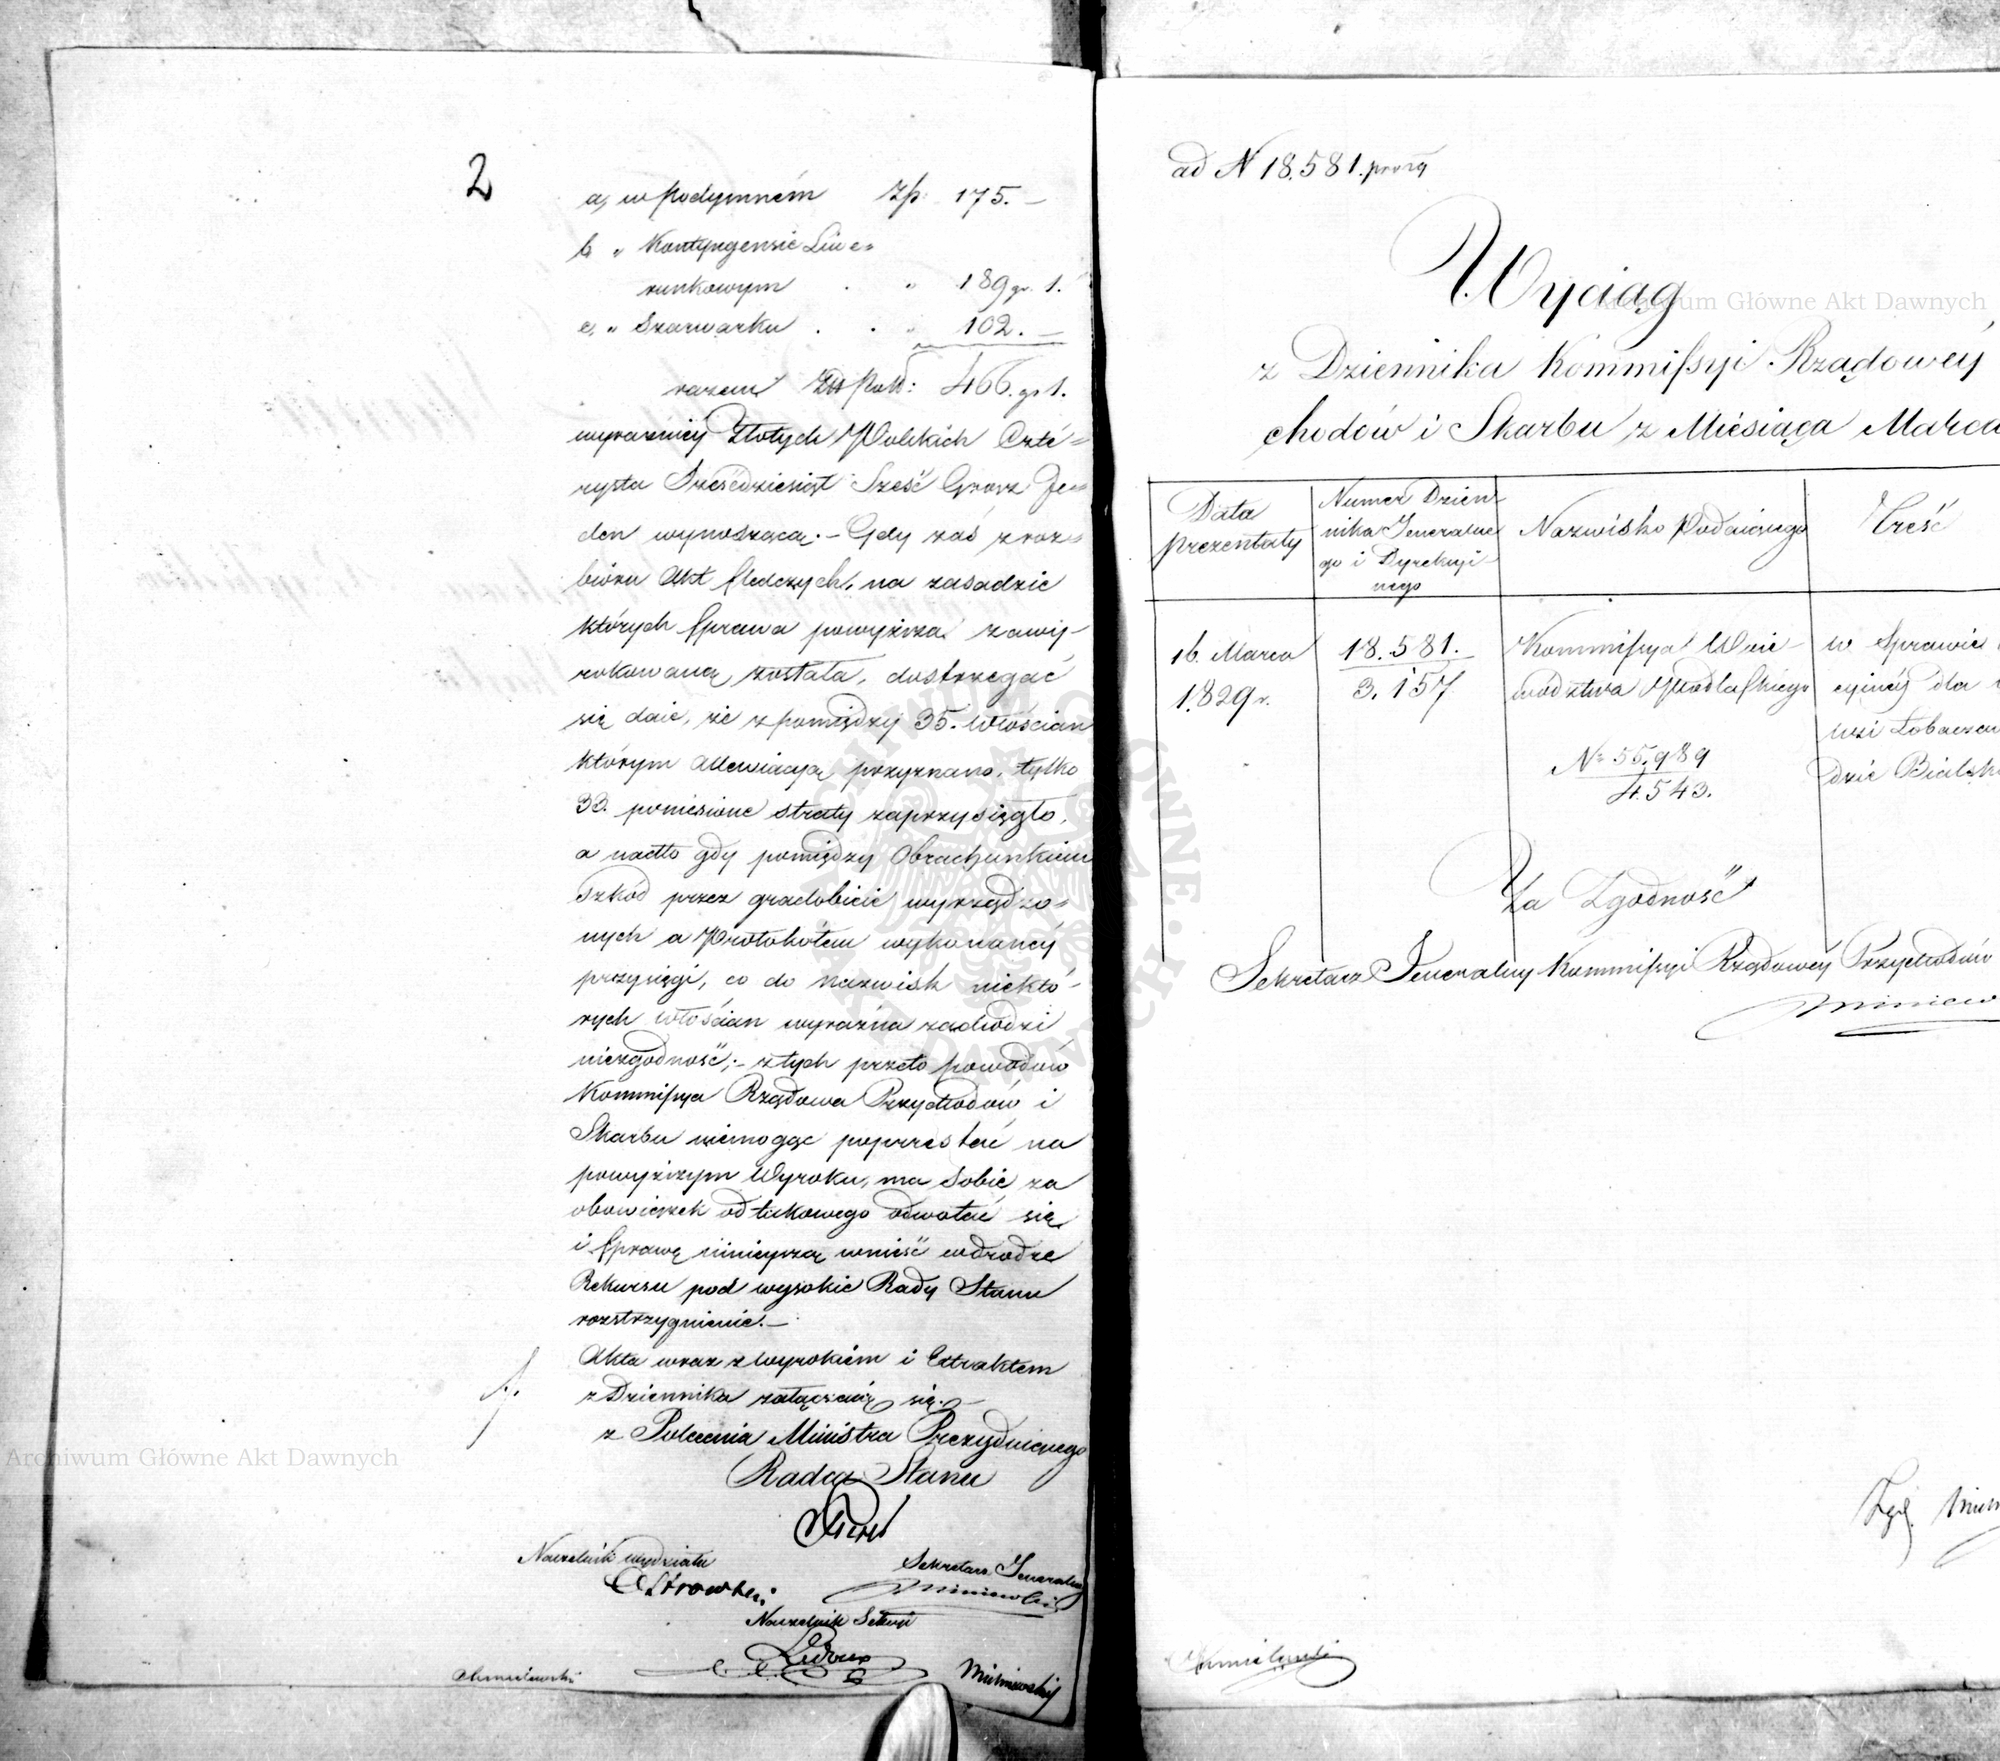 2
a, w Podymném Zł: 175. —
b „ Kontyngensie Liwe=
runkowym . „ 189 gr. 1.
c, „ Szarwarku . . „ 102. —
razem Zł Pols: 466. gr 1.
wyraźniey Złotych Polskich Czté=
rysta Sześćdziesiąt Sześć Grosz Je=
den wynosząca. — Gdy zaś z roz=
bioru Akt śledczych, na zasadzie
których sprawa powyższa zawy-
rokowaną została, dostrzegać
się daie, że z pomiędzy 35. Włościan
którym allewiacyą przyznano, tylko
33. poniesione straty zaprzysięgło,
a nadto gdy pomiędzy Obrachunkiem
szkód przez gradobicie wyrządzo=
nych a Protokółem wykonaney
przysięgi, co do nazwisk niektó-
rych włościan wyraźna zachodzi
niezgodność; — z tych przeto powodów
Kommissya Rządowa Przychodów i
Skarbu niemogąc poprzestać na
powyższym Wyroku, ma sobie za
obowiązek od takowego odwołać się
i sprawę ninieyszą wnieść w drodze
Rekursu pod wysokie Rady Stanu
rozstrzygnienie. —
Akta wraz z wyrokiem i Extraktem
z Dziennika załączaią się. —
z Polecenia Ministra Prezyduiącego
Radca Stanu
Naczelnik wydziału
Ostrowski
Sekretarz Jeneralny
Miniewski
Naczelnik Sekcyi
Ledoux
Chmielewski
Archiwum Główne Akt Dawnych
ad N 18.581.
Wyciąg
Archiwum Główne Akt Dawnych
z Dziennika Kommissyi Rządowéy
chodów i Skarbu z Miésiąca Marca
Data
prezentaty
Numer Dzien-
nika Jeneralne
go i Dyrekcyi-
nego
Nazwisko Podaiącego
Treść
16. Marca
1829 r.
18.581.
3.157
Kommissya Woie-
wództwa Podlaskiego
No 55.989
4.543.
w Sprawie
cyinéy dla
wsi Łobacze
dzie Bialsk
Za Zgodność
Sekretarz Jeneralny Kommissyi Rządowéy Przychodów
Miniew
ARCHIWUM GŁÓWNE AKT DAWNYCH